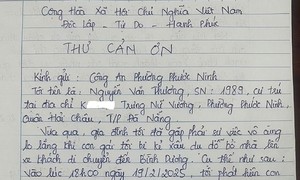 Cộng Hòa Xã Hội Chủ Nghĩa Việt Nam
Độc Lập - Tự Do - Hạnh Phúc
THƯ CẢN ƠN
Kính gửi : Công An Phường Phước Ninh
Tôi tên là : Nguyễn Văn Thương, SN : 1989, cư trú
tại địa chỉ K Trưng Nữ Vương, Phường Phước Ninh,
Quận Hải Châu, T/P Đà Nẵng
Vừa qua, gia đình tôi đã gặp phải sự việc vô cùng
lo lắng khi con gái tôi bị kẻ xấu dụ dỗ bỏ nhà lên
xe khách di chuyển đến Bình Dương. Cụ thể như sau :
Vào lúc 18h00 ngày 19/2/2025, tôi phát hiện con